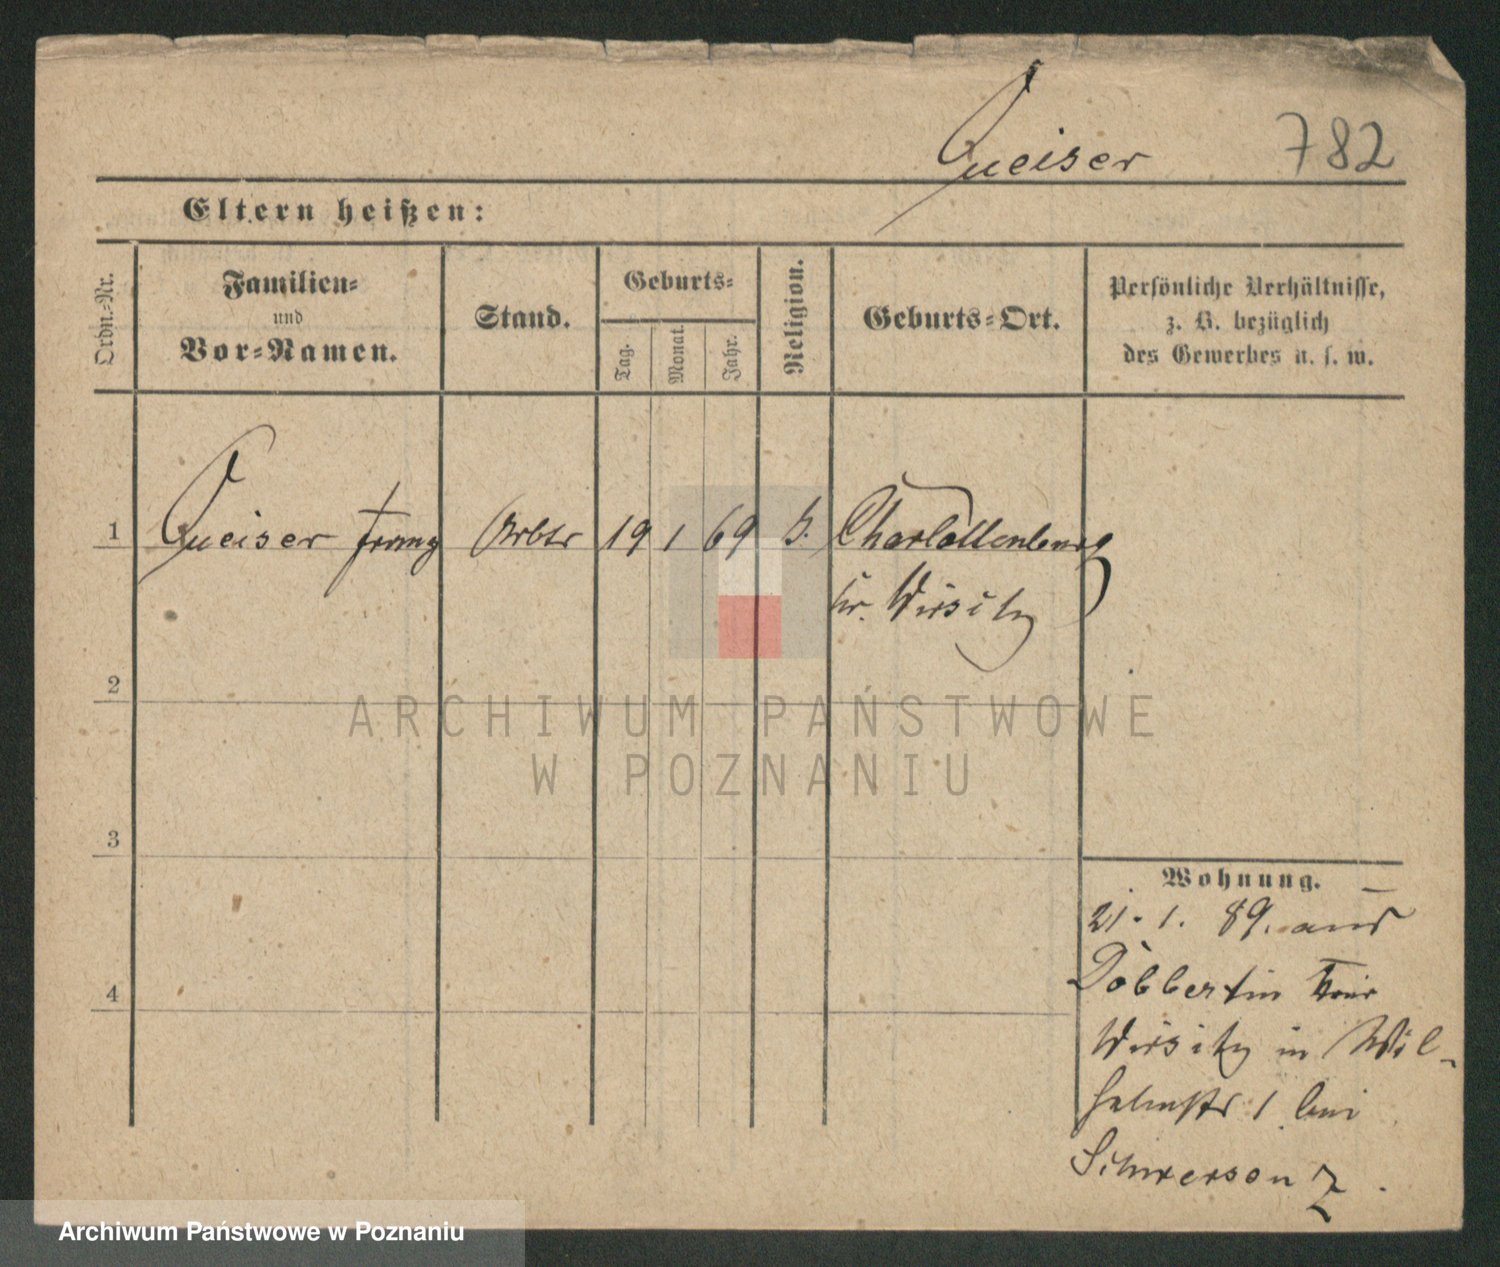 Queiser 782
Eltern heißen:
Ordn.-Nr.
Familien-
und
Vor-Namen.
Stand.
Geburts-
Tag.
Monat.
Jahr.
Religion.
Geburts-Ort.
Persönliche Verhältnisse,
z. B. bezüglich
des Gewerbes u. s. w.
1 Queiser Franz Arbtr 19 1 69 k. Charlottenburg
Kr. Wirsitz
2
3
4
Wohnung.
21. 1. 89. aus
Döbbertin Kreis
Wirsitz in Wil-
helmstr 1 bei
ARCHIWUM PAŃSTWOWE
W POZNANIU
Archiwum Państwowe w Poznaniu